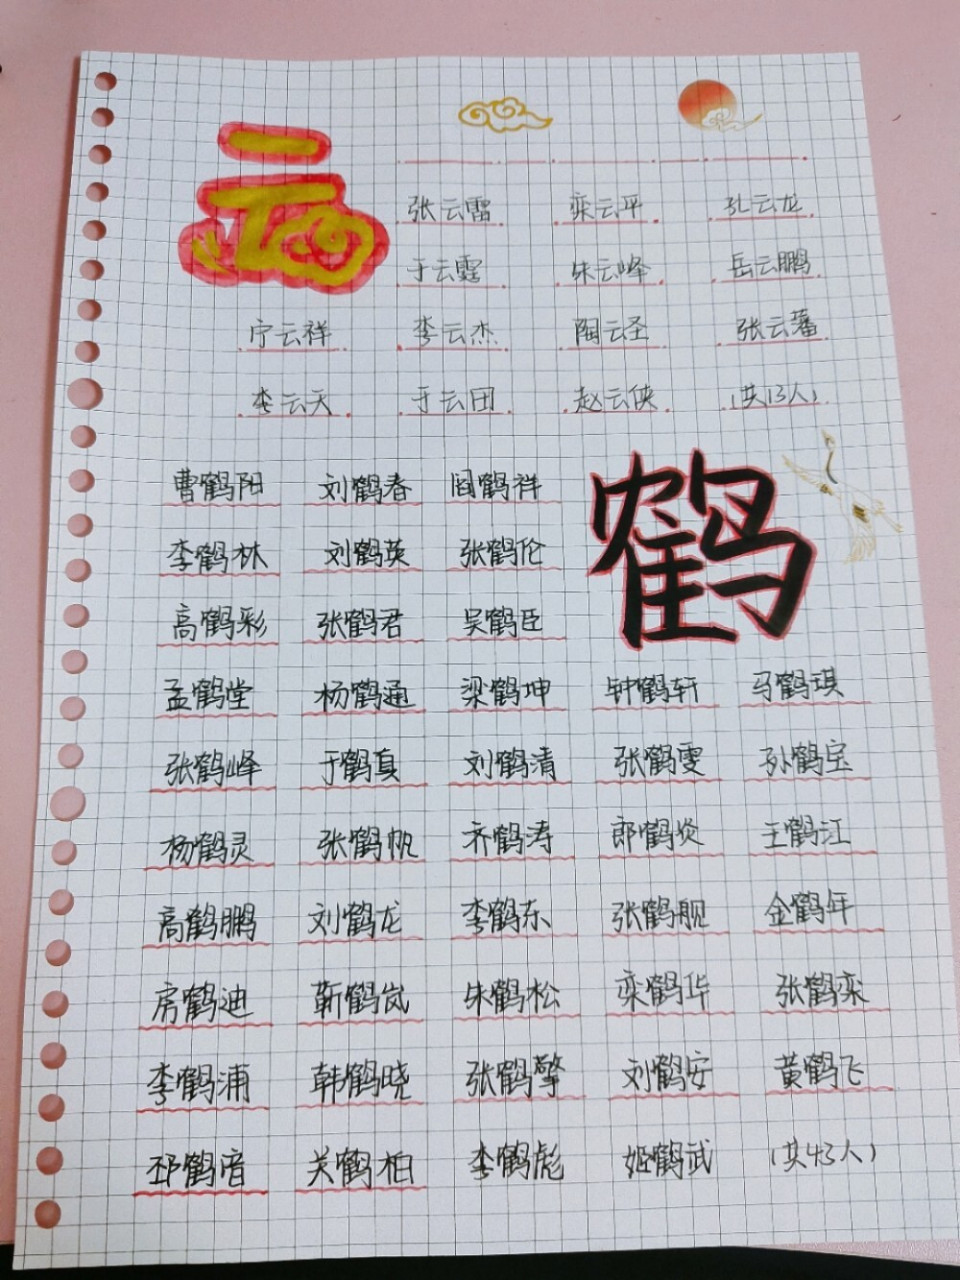 云
张云雷 栾云平 孔云龙
于云霆 朱云峰 岳云鹏
宁云祥 李云杰 陶云圣 张云蕃
李云天 于云团 赵云侠 (共13人)
鹤
曹鹤阳 刘鹤春 阎鹤祥
李鹤林 刘鹤英 张鹤伦
高鹤彩 张鹤君 吴鹤臣
孟鹤堂 杨鹤通 梁鹤坤 钟鹤轩 马鹤琪
张鹤峰 于鹤真 刘鹤清 张鹤雯 孙鹤宝
杨鹤灵 张鹤帆 齐鹤涛 郎鹤炎 王鹤江
高鹤鹏 刘鹤龙 李鹤东 张鹤舰 金鹤年
房鹤迪 靳鹤岚 朱鹤松 栾鹤华 张鹤栾
李鹤浦 韩鹤晓 张鹤擎 刘鹤安 黄鹤飞
邳鹤音 关鹤柏 李鹤彪 姬鹤武 (共43人)